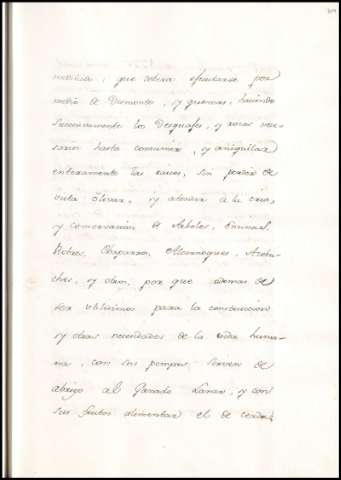 que devera efectuarse por
medio de Desmonte, y quemas, haciendo
succesivamente los Desquajes, y rozas nece-
sarias hasta consumir, y aniquilar
enteramente las raices, sin perder de
vista y atender á la cria,
y conservacion de Arboles,
Robres, Chaparros, Alcornoques, Acebu-
ches, y otros, por que ademas de
ser utilisimos para la construccion
y otras necesidades de la vida huma-
na, con sus pompas sirven de
abrigo al Ganado Lanar, y con
sus frutos alimentar el de cerda,